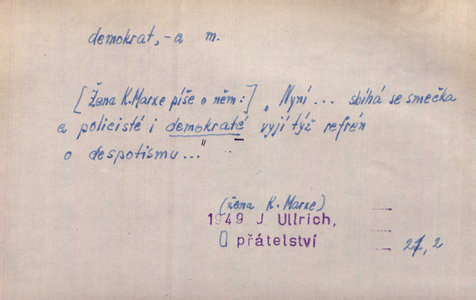 demokrat, -a m.
[Žena K. Marxe píše o něm:] „Nyní... sbíhá se smečka
a policisté i demokraté vyjí týž refrén
o despotismu..."
(žena K. Marxe)
1949 J Ullrich,
O přátelství
21, 2